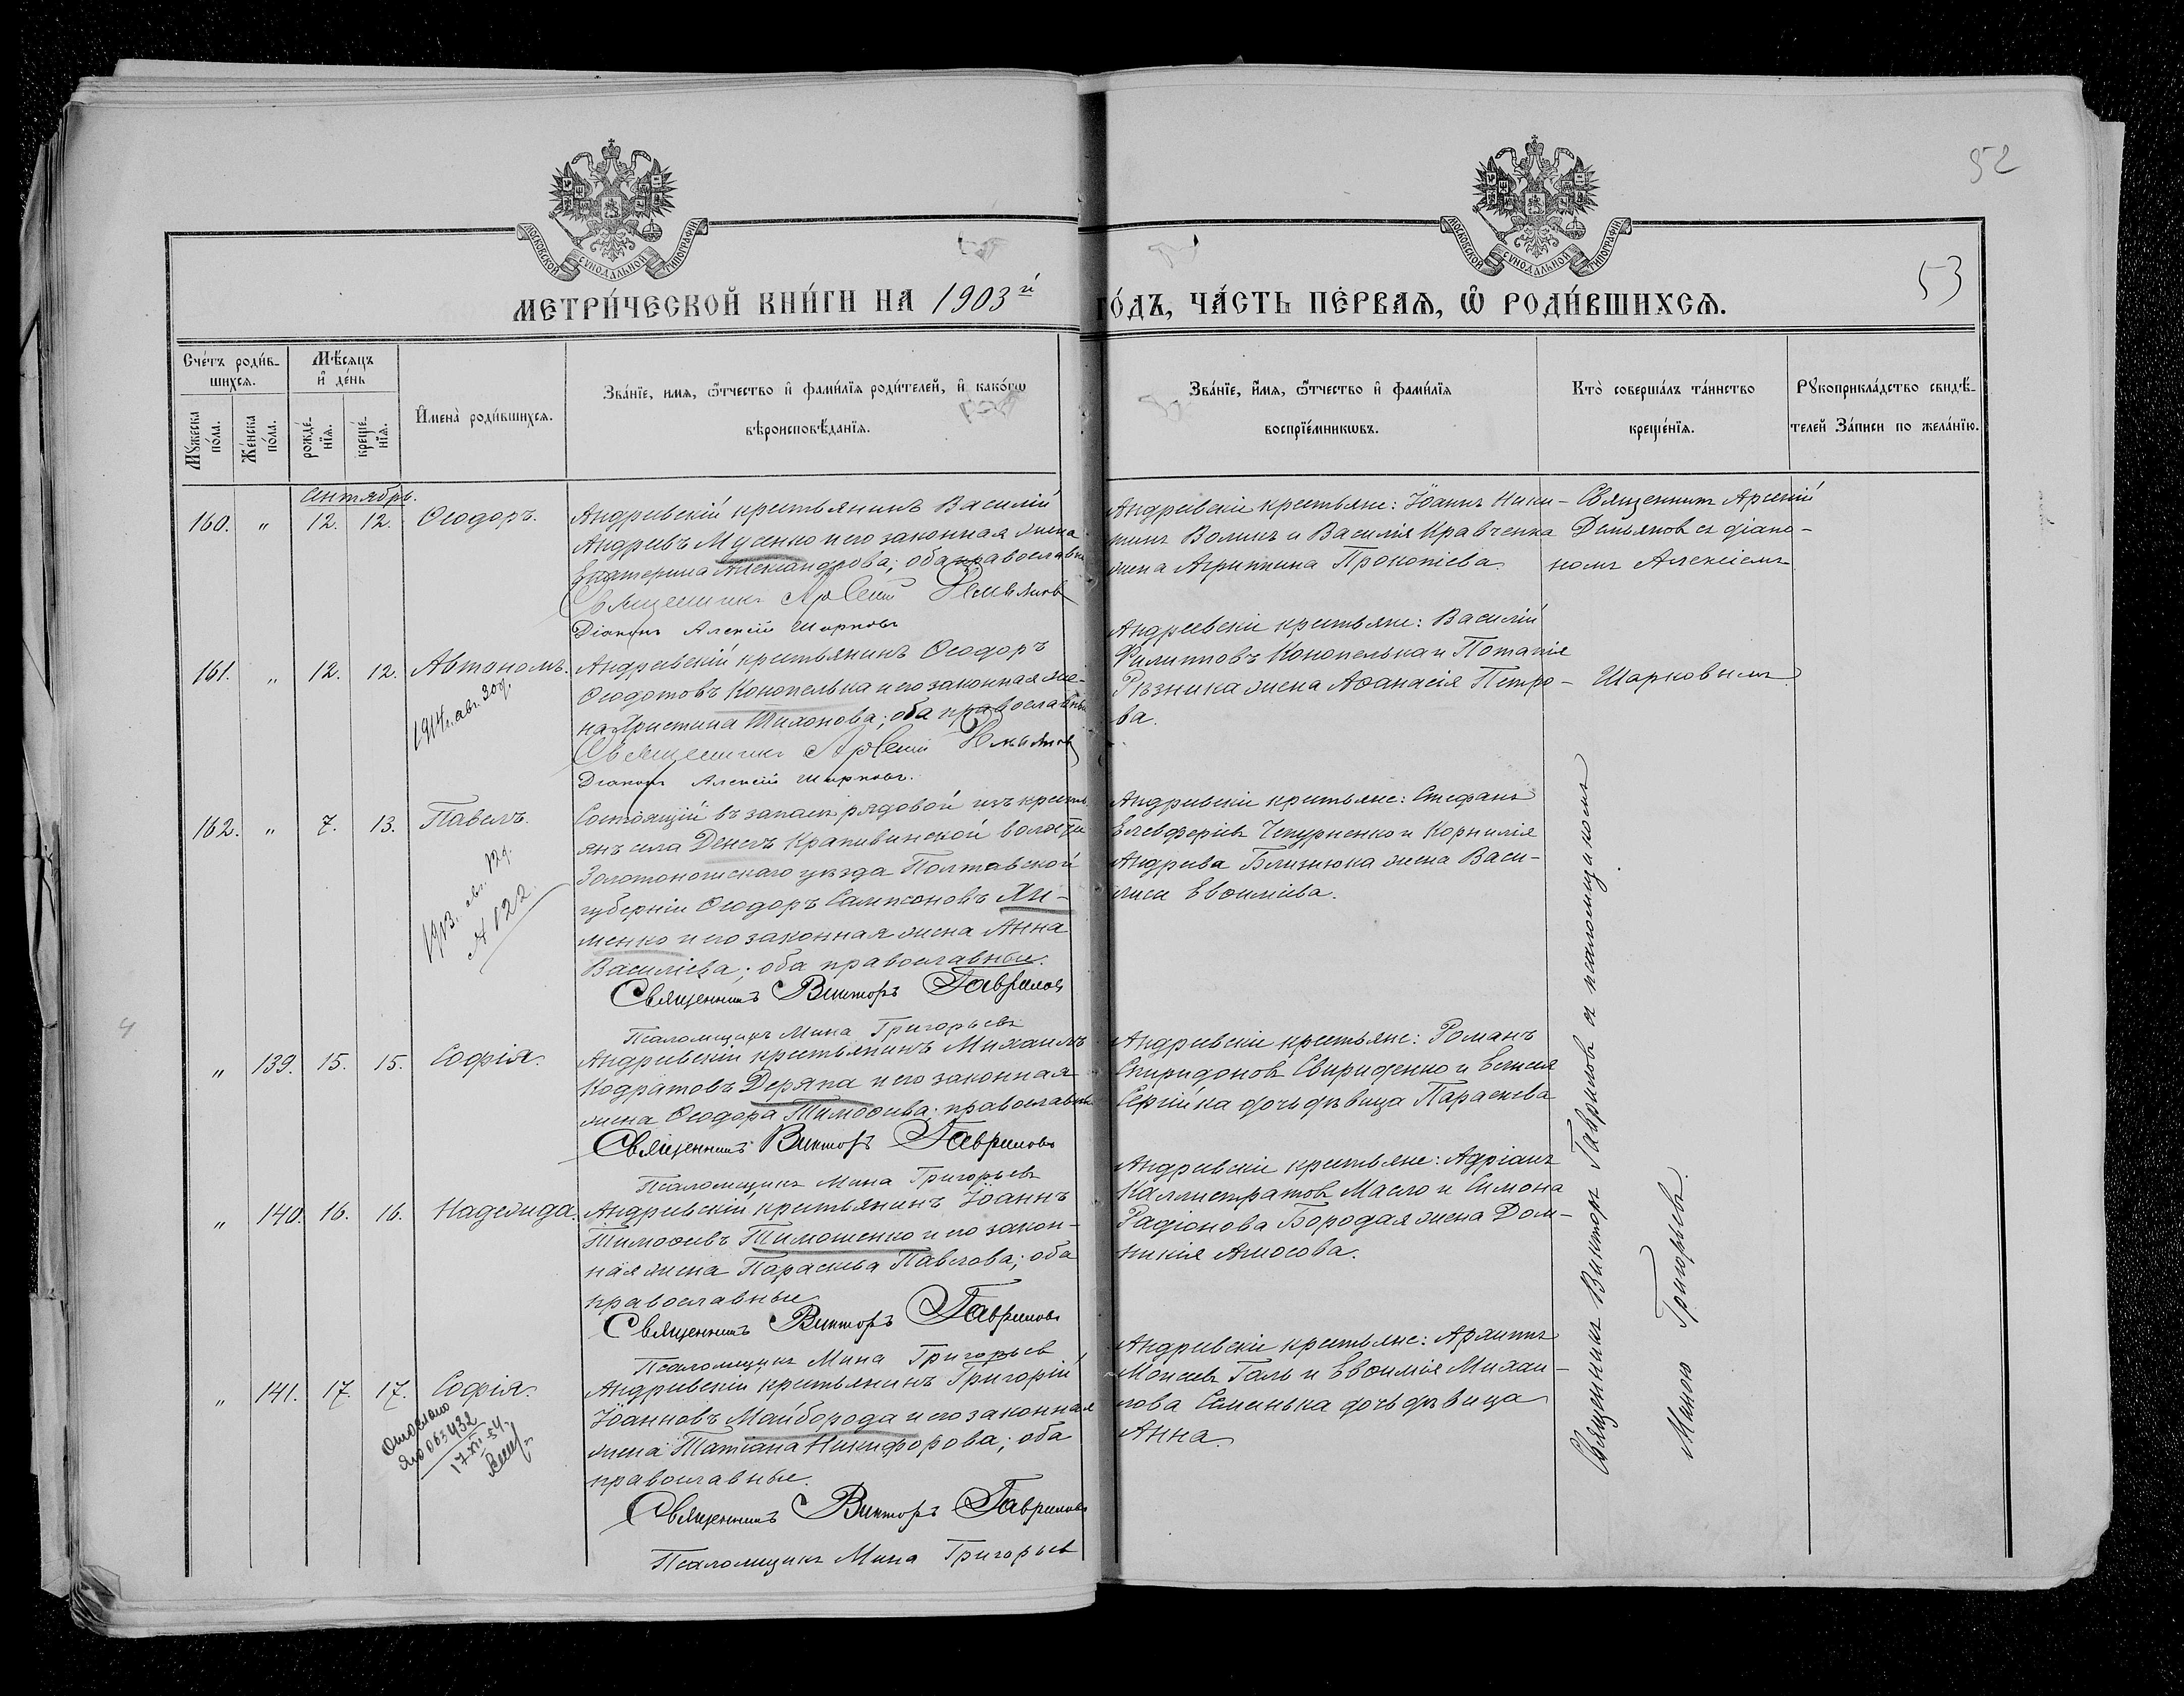 52
МОСКОВСКОЙ СѴНОДАЛЬНОЙ ТИПОГРАФІИ
МОСКОВСКОЙ СѴНОДАЛЬНОЙ ТИПОГРАФІИ
53
МЕТРИ́ЧЕСКОЙ КНИ́ГИ НА 1903й ГО́ДЪ, ЧА́СТЬ ПЕ́РВАѦ, Ѡ҆ РОДИ́ВШИХСѦ.
Сче́тъ роди́в-
шихсѧ.
Мꙋ́жеска по́ла.
Же́нска по́ла.
Мѣ́сѧцъ
и҆ де́нь
рожде́-
нїѧ.
креще́-
нїѧ.
И҆мена̀ роди́вшихсѧ.
Зва́нїе, имѧ, ѻ҆́тчество и҆ фами́лїѧ роди́телей, и҆ како́гѡ
вѣроисповѣ́данїѧ.
Зва́нїе, и҆́мѧ, ѻ҆́тчество и҆ фами́лїѧ
воспрїе́мникѡвъ.
Кто̀ соверша́лъ та́инство
креще́нїѧ.
Рꙋкоприкла́дство свидѣ́-
телей За́писи по жела́нїю.
Сентябрь.
160. " 12. 12. Ѳеодоръ.
Андреевскій крестьянинъ Василій
Андреевъ Мусенко и его законная жена
Екатерина Александрова; оба православны
Священникъ Арсеній Демьянов
Діаконъ Алексій Шарковъ
Андреевскіе крестьяне: Іоаннъ Ники-
тинъ Воликъ и Василія Кравченка
жена Агриппина Прокопіева.
Священникъ Арсеній
Демьяновъ съ діако-
номъ Алексіемъ
Шарковымъ.
161. " 12. 12. Автономъ.
1914 г. авг. 30 д.
Андреевскій крестьянинъ Ѳеодоръ
Ѳеодотовъ Конопелька и его законная же-
на Христина Тихонова; оба православны
Священникъ Арсеній Демьянов
Діаконъ Алексій Шарковъ.
Андреевскіе крестьяне: Василій
Филипповъ Конопелька и Потапія
Рѣзника жена Аѳанасія Петро-
ва.
162. " 7. 13. Павелъ.
1913 г. авг. 12 д.
№ 122
Состоящій въ запасѣ рядовой изъ кресть-
янъ села Денегъ Крапивинской волости
Золотоношскаго уѣзда Полтавской
губерніи Ѳеодоръ Сампсоновъ Хи-
менко и его законная жена Анна
Василіева; оба православные.
Священникъ Викторъ Гавриловъ
Псаломщикъ Мина Григорьевъ
Андреевскіе крестьяне: Стефанъ
Елевферіевъ Чепурненко и Корнилія
Андреева Близнюка жена Васи-
лиса Евѳиміева.
" 139. 15. 15. Софія.
Андреевскій крестьянинъ Михаилъ
Кодратовъ Деряпа и его законная
жена Ѳеодора Тимоѳеева; православны
Священникъ Викторъ Гавриловъ
Псаломщикъ Мина Григорьевъ
Андреевскіе крестьяне: Романъ
Спиридоновъ Свириденко и Елисея
Сергійка дочь дѣвица Параскева
" 140. 16. 16. Надежда.
Андреевскій крестьянинъ Іоаннъ
Тимоѳеевъ Тимошенко и его закон-
ная жена Параскева Павлова; оба
православные
Священникъ Викторъ Гавриловъ
Псаломщикъ Мина Григорьев
Андреевскіе крестьяне: Адріанъ
Каллистратовъ Масло и Симона
Радіонова Бородая жена Дом-
никія Амосова.
" 141. 17. 17. Софія.
Отослано
ЯЮ 063432
17-XII-54
Андреевскій крестьянинъ Григорій
Іоанновъ Майборода и его законная
жена Татіана Никифорова; оба
православные.
Священникъ Викторъ Гавриловъ
Псаломщикъ Мина Григорьев
Андреевскіе крестьяне: Архиппъ
Моисеевъ Галь и Евѳимія Михаи-
лова Семенька дочь дѣвица
Анна.
Священникъ Викторъ Гавриловъ съ псаломщикомъ
Миною Григорьевъ.